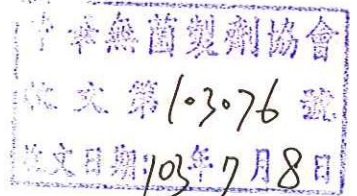 中華無菌製劑協會
收文第103076號
收文日期:103年7月8日